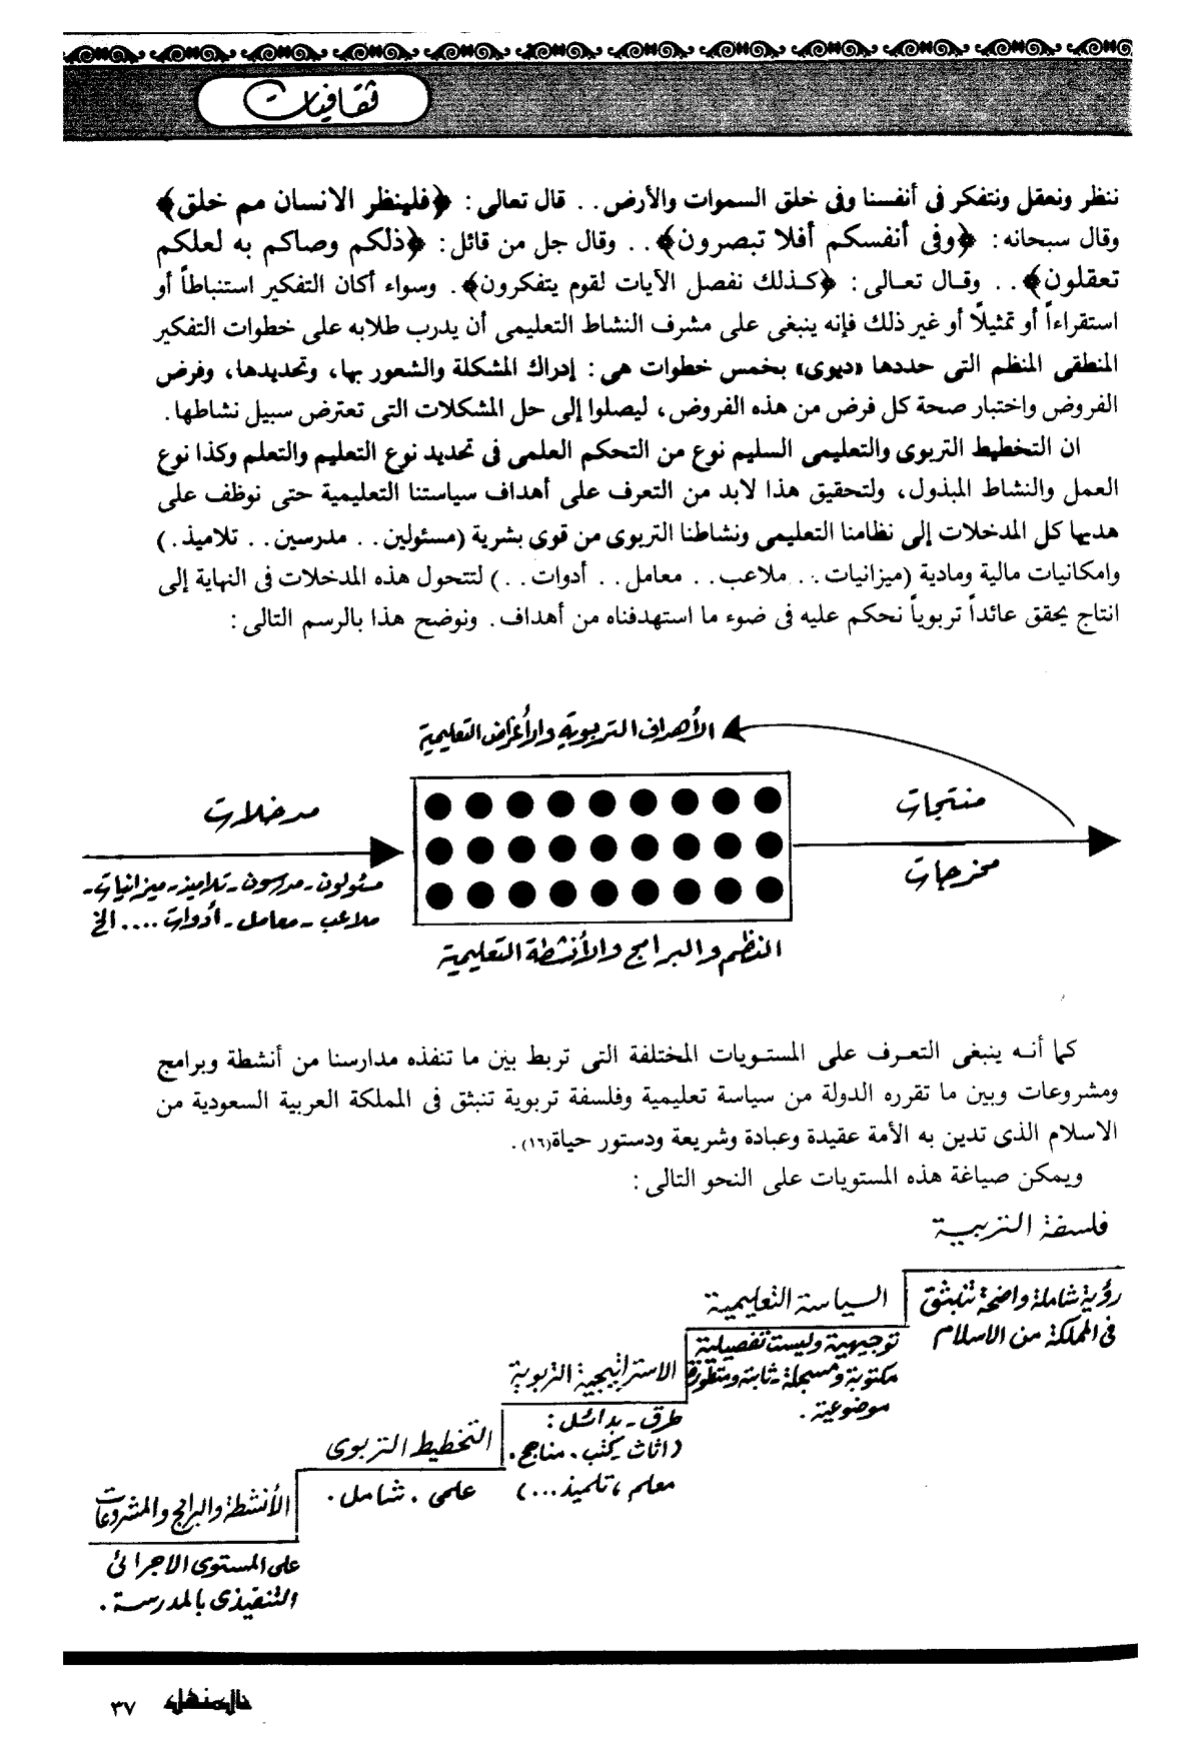 ثقافيات
ننظر ونعقل ونتفكر فى أنفسنا وفى خلق السموات والأرض . . قال تعالى : ﴿فلينظر الانسان مم خلق﴾
وقال سبحانه : ﴿وفى أنفسكم أفلا تبصرون﴾ . . وقال جل من قائل : ﴿ذلكم وصاكم به لعلكم
تعقلون﴾ . . وقال تعالى : ﴿كذلك نفصل الآيات لقوم يتفكرون﴾ . وسواء أكان التفكير استنباطاً أو
استقراءاً أو تمثيلاً أو غير ذلك فإنه ينبغى على مشرف النشاط التعليمى أن يدرب طلابه على خطوات التفكير
المنطقى المنظم التى حددها «ديوى» بخمس خطوات هى : إدراك المشكلة والشعور بها ، وتحديدها ، وفرض
الفروض واختبار صحة كل فرض من هذه الفروض ، ليصلوا إلى حل المشكلات التى تعترض سبيل نشاطها .
ان التخطيط التربوى والتعليمى السليم نوع من التحكم العلمى فى تحديد نوع التعليم والتعلم وكذا نوع
العمل والنشاط المبذول ، ولتحقيق هذا لابد من التعرف على أهداف سياستنا التعليمية حتى نوظف على
هديها كل المدخلات إلى نظامنا التعليمى ونشاطنا التربوى من قوى بشرية (مسئولين . . مدرسين . . تلاميذ .)
وامكانيات مالية ومادية (ميزانيات . . ملاعب . . معامل . . أدوات . .) لتتحول هذه المدخلات فى النهاية إلى
انتاج يحقق عائداً تربوياً نحكم عليه فى ضوء ما استهدفناه من أهداف . ونوضح هذا بالرسم التالى :
الأهداف التربوية والأغراض التعليمية
منتجات
مخرجات
مدخلات
مسئولون - مدرسون - تلاميذ - ميزانيات -
ملاعب - معامل - أدوات .... الخ
النظم والبرامج والأنشطة التعليمية
كما أنه ينبغى التعرف على المستويات المختلفة التى تربط بين ما تنفذه مدارسنا من أنشطة وبرامج
ومشروعات وبين ما تقرره الدولة من سياسة تعليمية وفلسفة تربوية تنبثق فى المملكة العربية السعودية من
الاسلام الذى تدين به الأمة عقيدة وعبادة وشريعة ودستور حياة(١٦) .
ويمكن صياغة هذه المستويات على النحو التالى :
فلسفة التربية
رؤية شاملة واضحة تنبثق
فى المملكة من الاسلام
السياسة التعليمية
توجيهية وليست تفصيلية
مكتوبة ومسجلة - ثابتة ومتطورة
موضوعية .
الاستراتيجية التربوية
طرق - بدائل :
(اثاث كتب . مناهج .
معلم ، تلميذ ...)
التخطيط التربوى
علمى . شامل .
الأنشطة والبرامج والمشروعات
على المستوى الاجرائى
التنفيذى بالمدرسة .
المنهل
٣٧